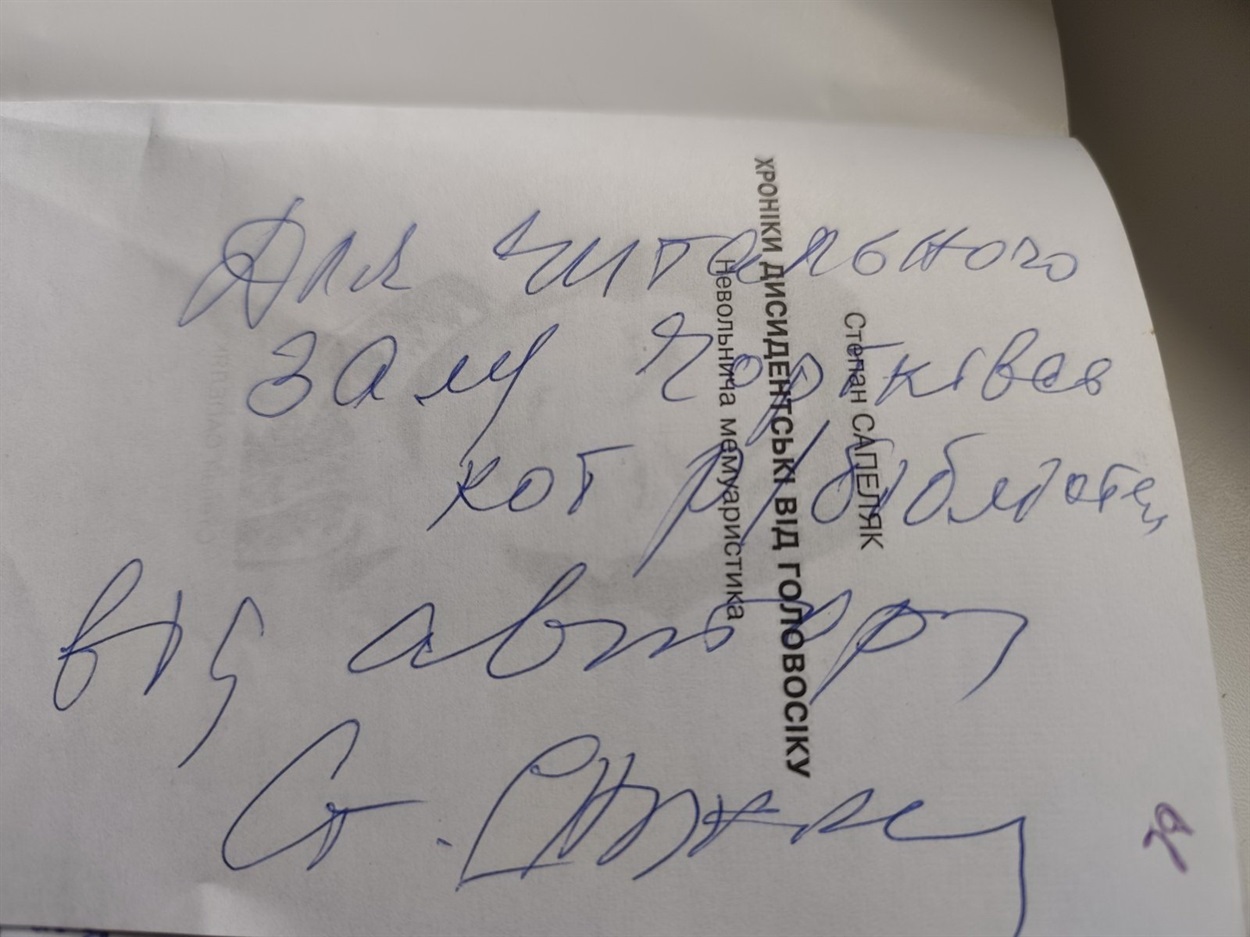 Степан САПЕЛЯК
ХРОНІКИ ДИСИДЕНТСЬКІ ВІД ГОЛОВОСІКУ
Невольнича мемуаристика
Для читального
залу Чортківсь
кот р/бібліотеки
від автора
Ст.